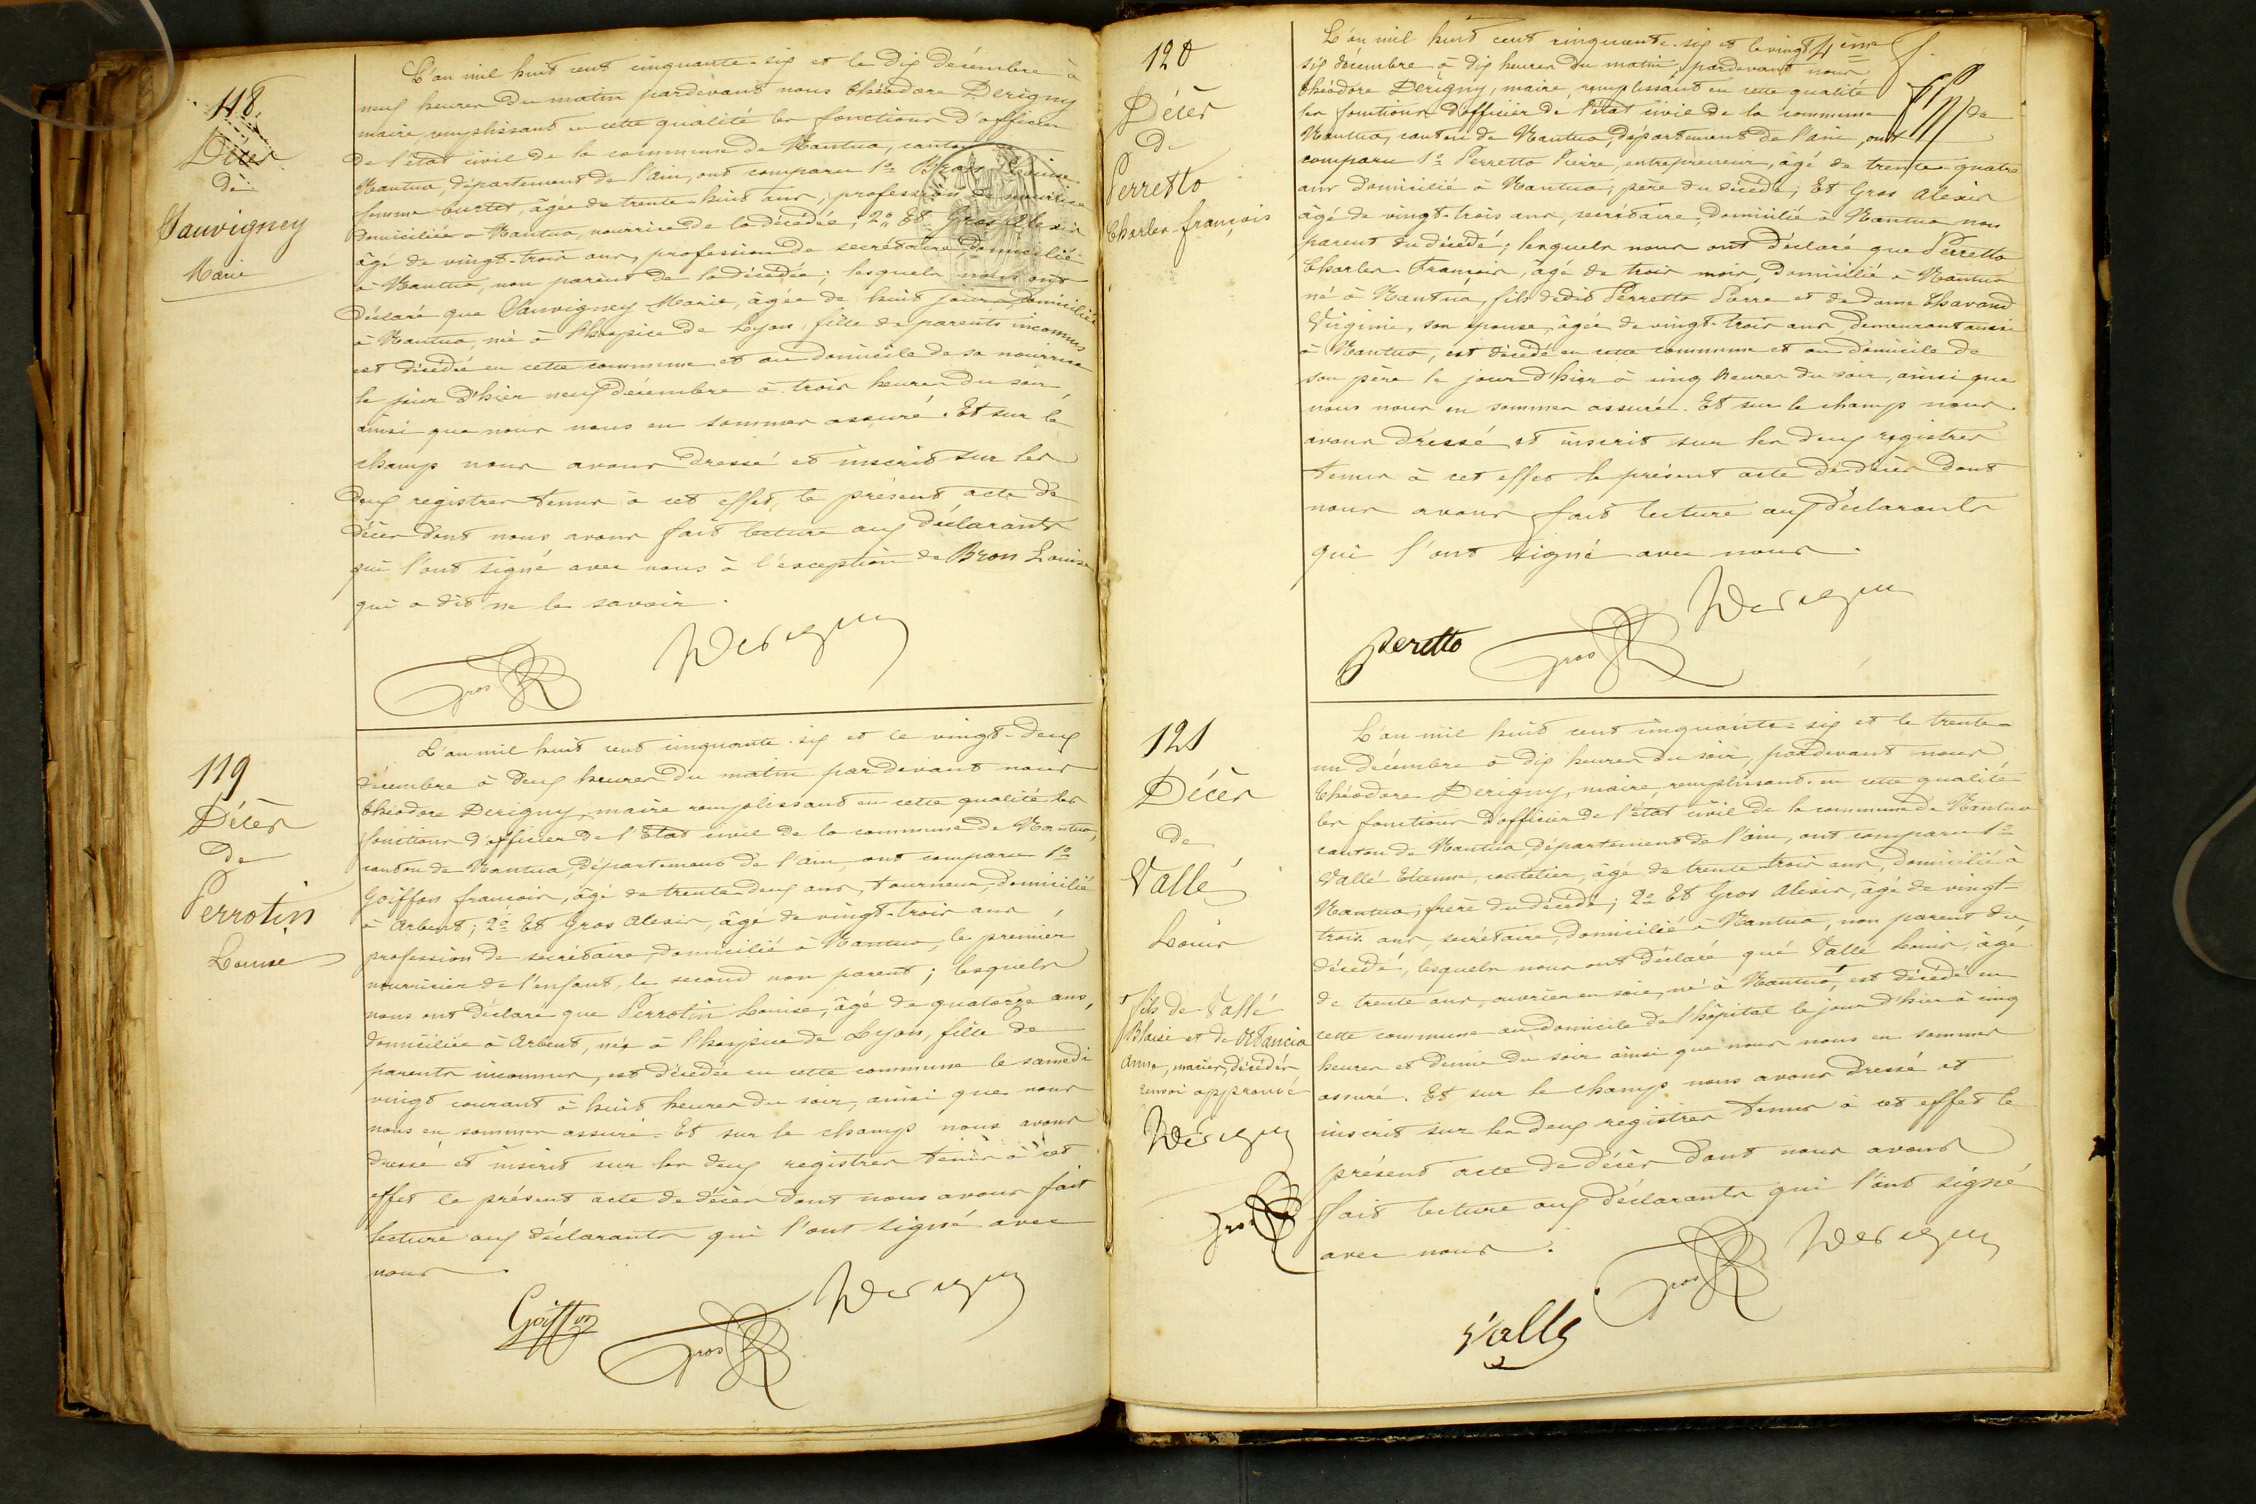 118.
Décès
de
Sauvigney
Marie
L'an mil huit cent cinquante-six et le dix décembre à
neuf heures du matin pardevant nous Théodore Derigny
maire, remplissant en cette qualité les fonctions d'officier
de l'état civil de la commune de Nantua, canton de
Nantua, département de l'ain, ont comparu 1º Bron Louise
femme Curtet, âgée de trente-huit ans, profession de nourrice
domiciliée à Nantua, nourrice de la décédée; 2º Et Gros Alexis
âgé de vingt-trois ans, profession de secrétaire domicilié
à Nantua, non parent de la décédée; lesquels nous ont
déclaré que Sauvigney Marie, âgée de huit jours, domiciliée
à Nantua, née à l'hospice de Lyon, fille de parents inconnus
est décédée en cette commune et au domicile de sa nourrice
le jour d'hier neuf décembre à trois heures du soir
ainsi que nous nous en sommes assuré. Et sur le
champ nous avons dressé et inscrit sur les
deux registres tenus à cet effet, le présent acte de
décès dont nous avons fait lecture aux déclarants
qui l'ont signé avec nous à l'exception de Bron Louise
qui a dit ne le savoir.
Gros Derigny
119
Décès
de
Perrotin
Louise
L'an mil huit cent cinquante-six et le vingt-deux
décembre à deux heures du matin pardevant nous
Théodore Derigny, maire remplissant en cette qualité les
fonctions d'officier de l'état civil de la commune de Nantua,
canton de Nantua, département de l'ain, ont comparu 1º
Goiffon françois, âgé de trente-deux ans, tourneur, domicilié
à Arbent; 2º Et Gros Alexis, âgé de vingt-trois ans
profession de secrétaire, domicilié à Nantua, le premier
nourricier de l'enfant, le second non parent; lesquels
nous ont déclaré que Perrotin Louise, âgé de quatorze ans,
domiciliée à Arbent, née à l'hospice de Lyon, fille de
parents inconnus, est décédée en cette commune le samedi
vingt courant à huit heures du soir, ainsi que nous
nous en sommes assuré. Et sur le champ nous avons
dressé et inscrit sur les deux registres tenus à cet
effet le présent acte de décès dont nous avons fait
lecture aux déclarants qui l'ont signé avec
nous.
Goiffon Gros Derigny
120
Décès
de
Perretto
Charles françois
L'an mil huit cent cinquante-six et le vingt
six décembre à dix heures du matin, pardevant nous
Théodore Derigny, maire, remplissant en cette qualité
les fonctions d'officier de l'état civil de la commune de
Nantua, canton de Nantua, département de l'ain, ont
comparu 1º Perretto Pierre, entrepreneur, âgé de trente-quatre
ans domicilié à Nantua, père du décédé; Et Gros Alexis
âgé de vingt-trois ans, secrétaire, domicilié à Nantua non
parent du décédé; lesquels nous ont déclaré que Perretto
Charles François, âgé de trois mois, domicilié à Nantua
né à Nantua, fils dudit Perretto Pierre et de dame Chavand
Virginie, son épouse, âgée de vingt-trois ans, demeurant aussi
à Nantua, est décédé en cette commune et au domicile de
son père le jour d'hier à cinq heures du soir, ainsi que
nous nous en sommes assuré. Et sur le champ nous
avons dressé et inscrit sur les deux registres
tenus à cet effet le présent acte de décès dont
nous avons fait lecture aux déclarants
qui l'ont signé avec nous.
Peretto Gros Derigny
4ème f.
121
Décès
de
Vallé
Louis
+ fils de Vallé
Blaise et de
Anne, mariés, décédés
renvoi approuvé
Derigny
Gros
L'an mil huit cent cinquante-six et le trente-
un décembre à dix heures du soir, pardevant nous
Théodore Derigny, maire, remplissant en cette qualité
les fonctions d'officier de l'état civil de la commune de Nantua
canton de Nantua, département de l'ain, ont comparu 1º
Vallé Etienne, coutelier, âgé de trente-trois ans, domicilié à
Nantua, frère du décédé; 2º Et Gros Alexis, âgé de vingt-
trois ans, secrétaire, domicilié à Nantua, non parent du
décédé, lesquels nous ont déclaré que Vallé Louis, âgé
de trente ans, ouvrier en soie, né à Nantua +, est décédé en
cette commune au domicile de l'hôpital le jour d'hier à cinq
heures et demie du soir ainsi que nous nous en sommes
assuré. Et sur le champ nous avons dressé et
inscrit sur les deux registres tenus à cet effet le
présent acte de décès dont nous avons
fait lecture aux déclarants qui l'ont signé
avec nous.
Vallé Gros Derigny